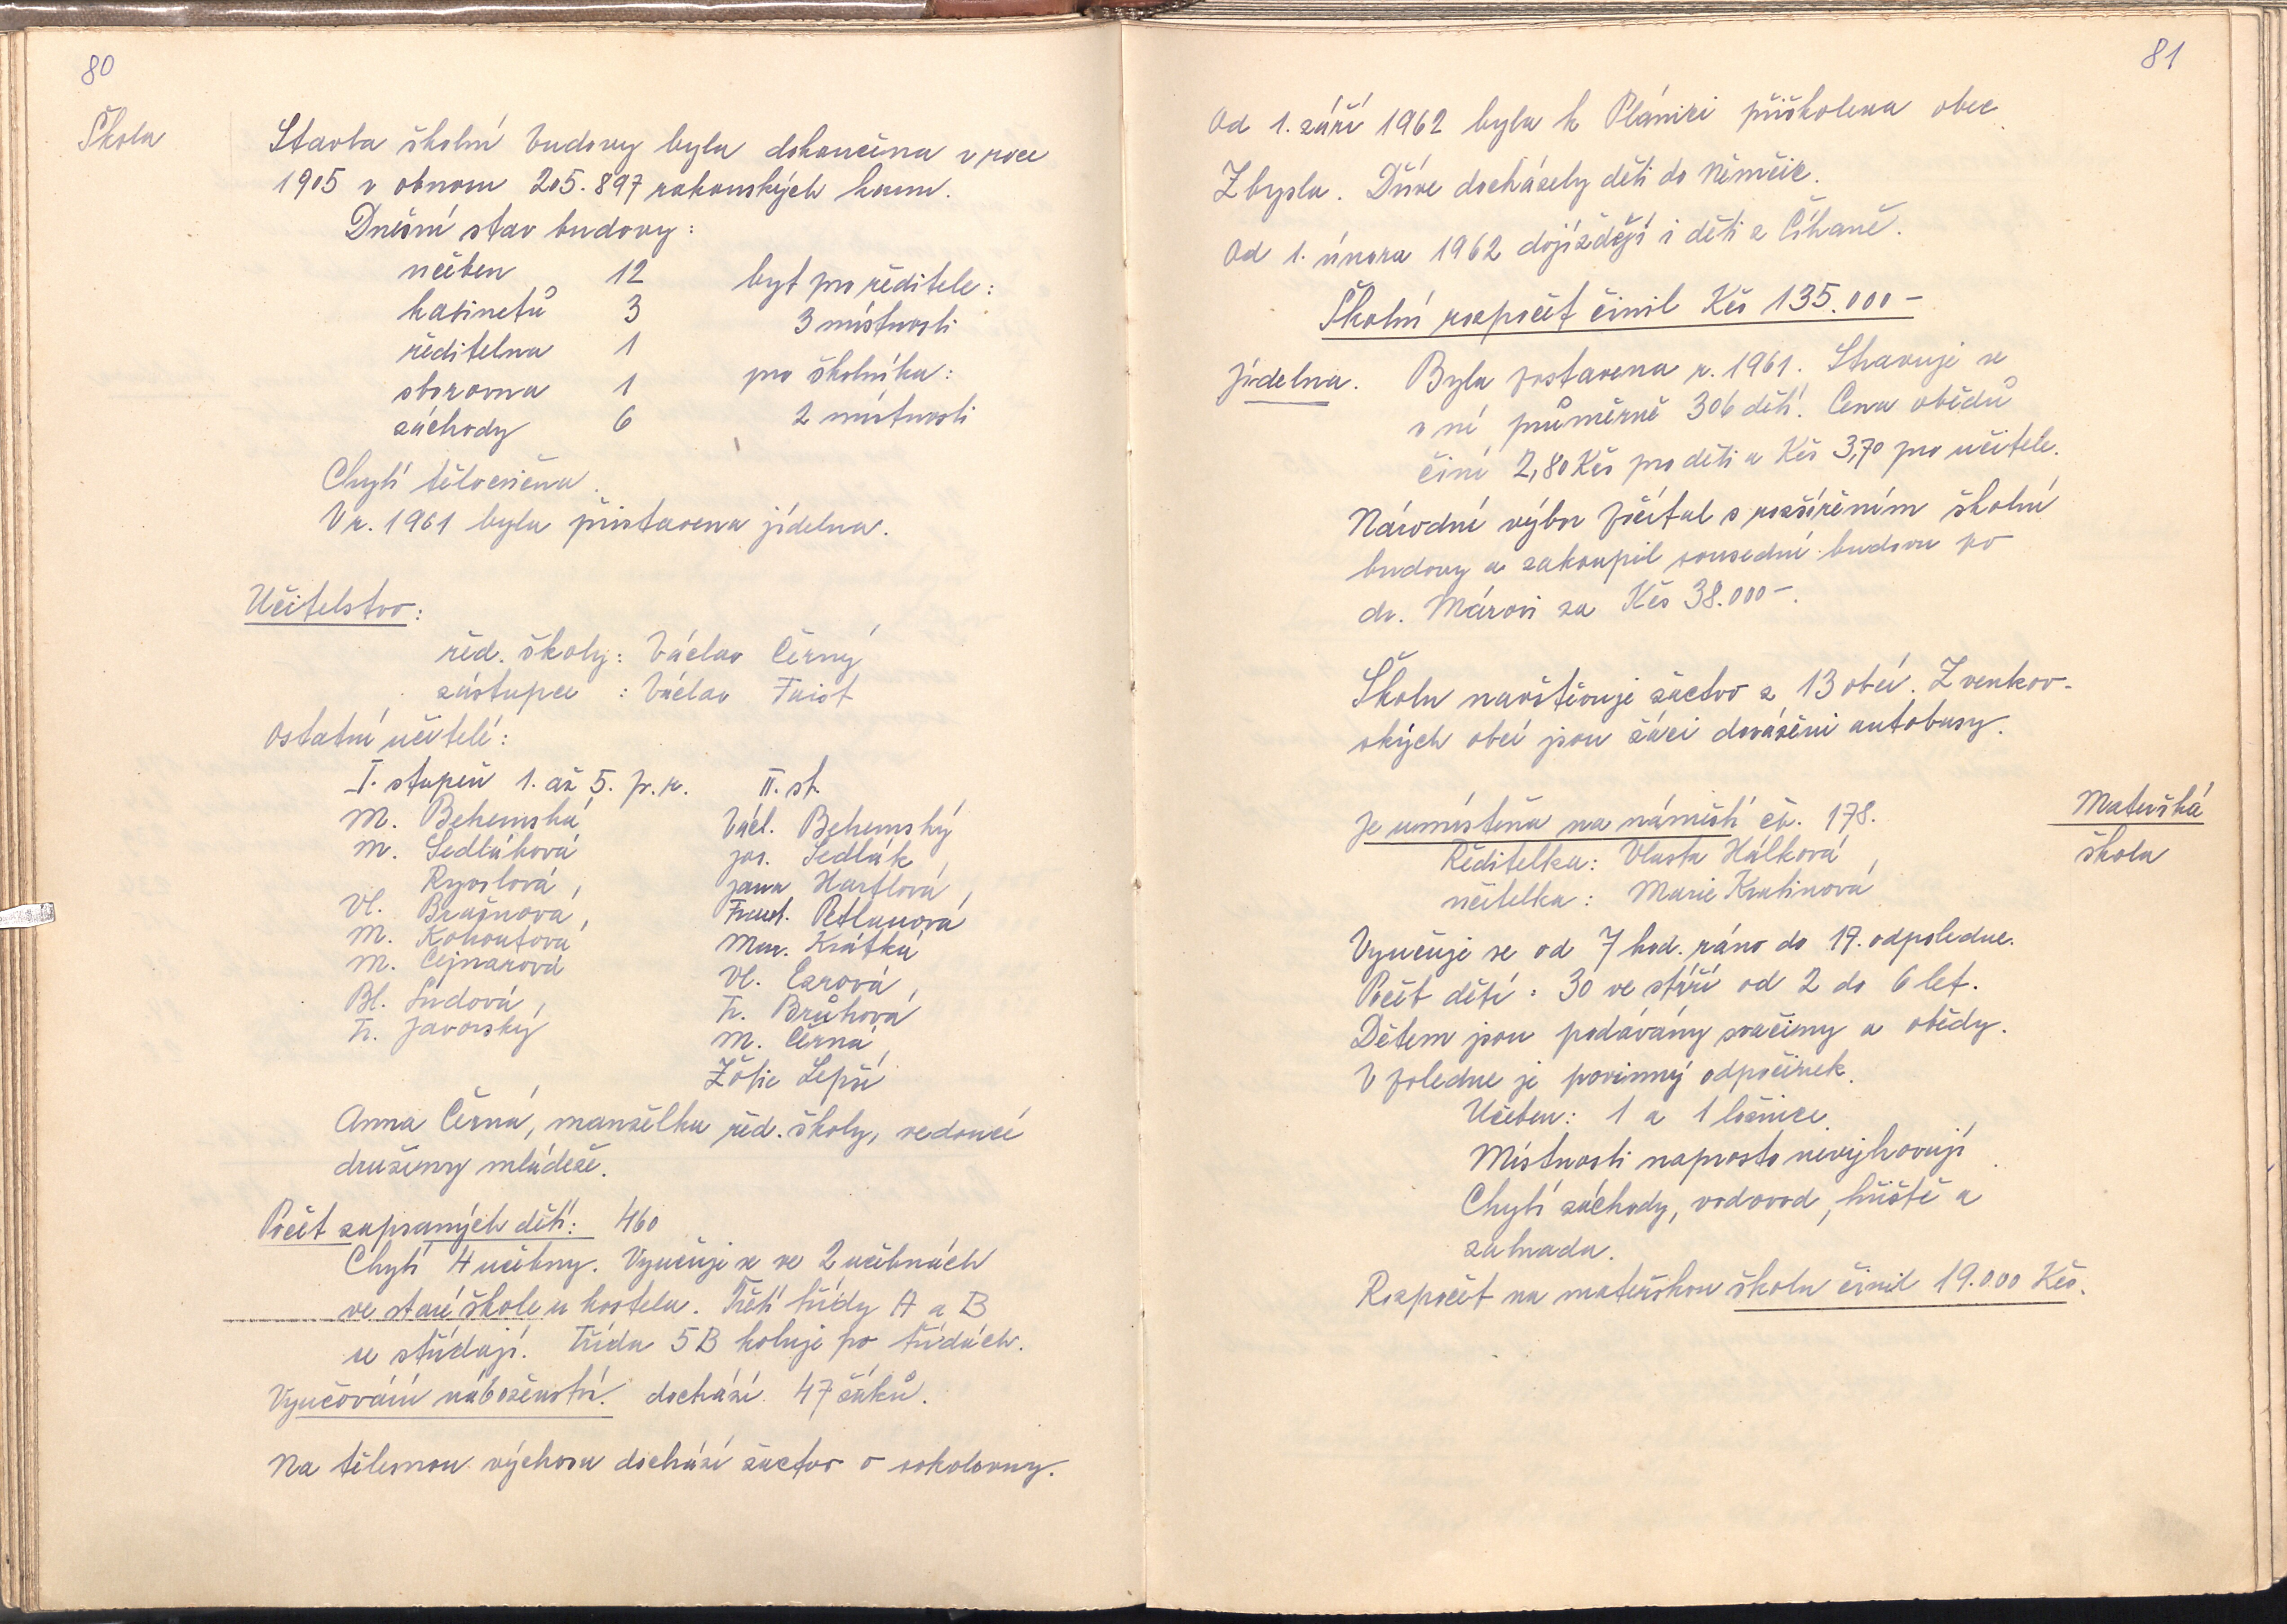 80
Škola
Stavba školní budovy byla dokončena v roce
1905 v obnosu 205.897 rakouských korun.
Dnešní stav budovy:
učeben 12 byt pro ředitele:
kabinetů 3 3 místnosti
ředitelna 1
pro školníka:
sborovna 1
2 místnosti
záchody 6
Chybí tělocvična.
V r. 1961 byla přistavena jídelna.
Učitelstvo:
řed. školy: Václav Černý
zástupce : Václav Faist
Ostatní učitelé:
I. stupeň 1. až 5. p.r. II. st.
M. Behemská Václ. Behemský
M. Sedláková Jos. Sedlák,
Ryvolová, Jana Hartlová,
Vl. Brašnová, Frant. Petlanová
M. Kohoutová Mar. Krátká
M. Cejnarová Vl. Earová,
Bl. Sudová, Fr. Brůhová
Fr. Javorský M. Černá,
Žofie Lepší
Anna Černá, manželka řed. školy, vedoucí
družiny mládeže.
Počet zapsaných dětí: 460
Chybí 4 učebny. Vyučuje se ve 2 učebnách
ve staré škole u kostela. Třetí třídy A a B
se střídají. Třída 5B koluje po třídách.
Vyučování náboženství. dochází 47 žáků.
Na tělesnou výchovu dochází žactvo o sokolovny.
81
Od 1. září 1962 byla k Plánici přiškolena obec
Zbyslav. Dříve docházely děti do Němčic.
Od 1. února 1962 dojíždějí i děti z Číhaně.
Školní rozpočet činil Kčs 135.000-
Jídelna. Byla postavena r. 1961. Stravuje se
v ní průměrně 306 dětí. Cena obědů
činí 2,80 Kčs pro děti a Kčs 3,70 pro učitele.
Národní výbor počítal s rozšířením školní
budovy a zakoupil sousední budovu po
dr. Márovi za Kčs 38.000-.
Školu navštěvuje žactvo z 13 obcí. Z venkov-
ských obcí jsou žáci dováženi autobusy.
Mateřská
škola
Je umístěna na náměstí čp. 178.
Ředitelka: Vlasta Hálková,
učitelka: Marie Kratinová
Vyučuje se od 7 hod. ráno do 17. odpoledne.
Počet dětí: 30 ve stáří od 2 do 6 let.
Dětem jsou podávány svačiny a obědy.
V poledne je povinný odpočinek.
Učeben: 1 a 1 ložnice.
Místnosti naprosto nevyhovují.
Chybí záchody, vodovod, hřiště a
zahrada.
Rozpočet na mateřskou školu činil 19.000 Kčs.